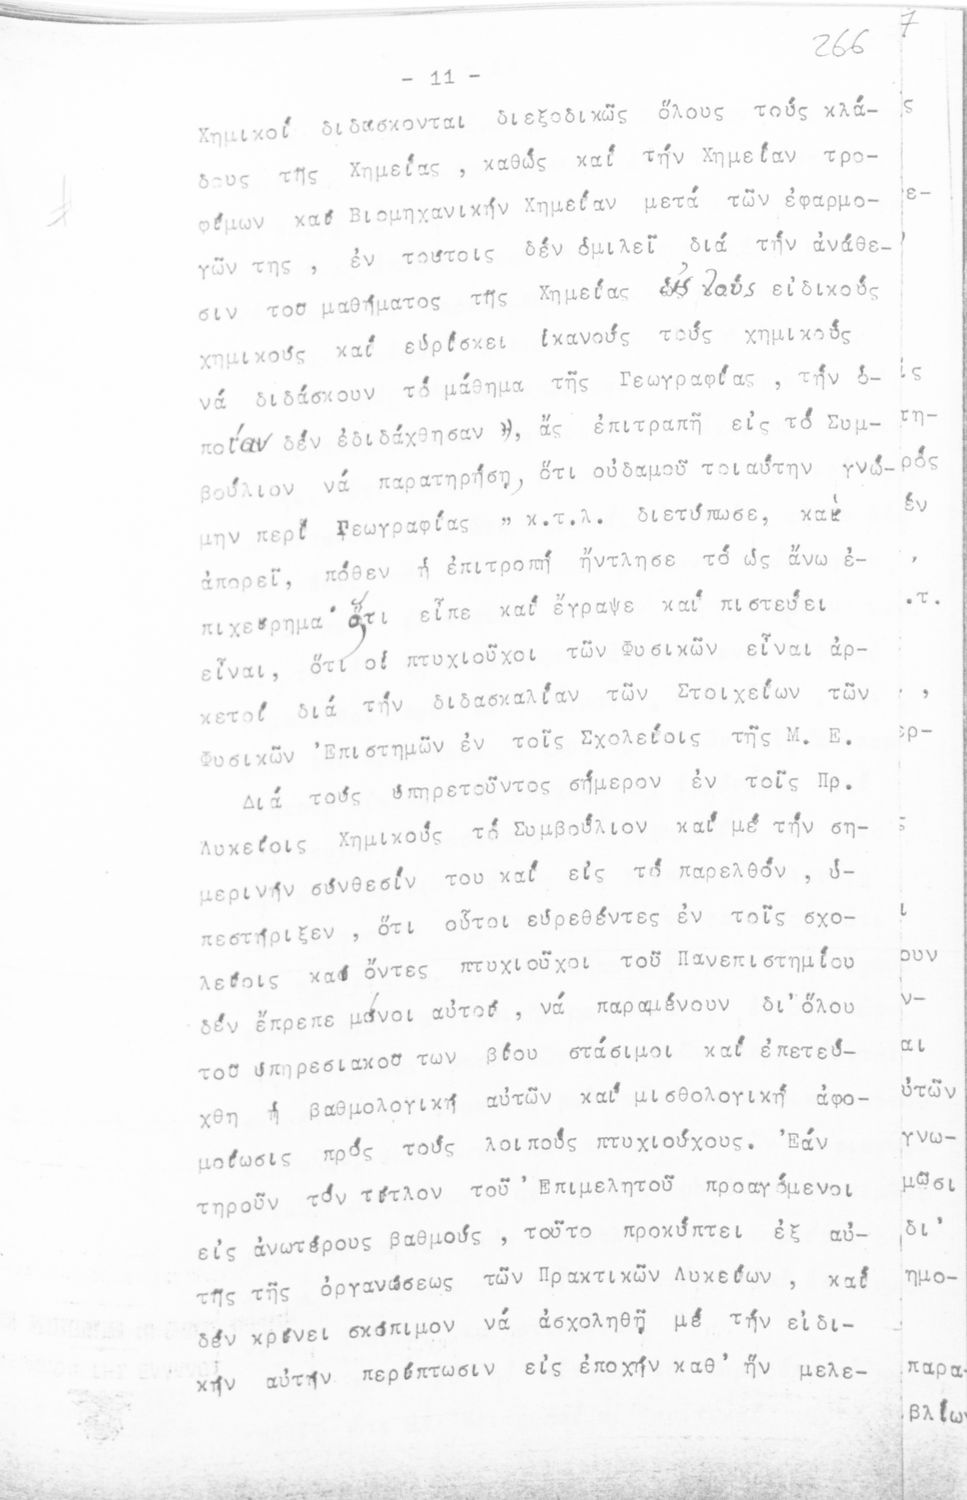 7
266
- 11 -
Χημικοί διδάσκονται διεξοδικῶς ὅλους τούς κλά-
δους τῆς Χημείας , καθώς καί τήν Χημείαν τρο-
φίμων καί Βιομηχανικήν Χημείαν μετά τῶν ἐφαρμο-
γῶν της , ἐν τούτοις δέν ὁμιλεῖ διά τήν ἀνάθε-
σιν τοῦ μαθήματος τῆς Χημείας εἰς τούς εἰδικούς
χημικούς καί εὑρίσκει ἱκανούς τούς χημικούς
νά διδάσκουν τό μάθημα τῆς Γεωγραφίας , τήν ὁ-
ποίαν δέν ἐδιδάχθησαν », ἄς ἐπιτραπῆ εἰς τό Συμ-
βούλιον νά παρατηρήση, ὅτι οὐδαμοῦ τοιαύτην γνώ-
μην περί Γεωγραφίας " κ.τ.λ. διετύπωσε, καί
ἀπορεῖ, πόθεν ἡ ἐπιτροπή ἤντλησε τό ὡς ἄνω ἐ-
πιχείρημα· ὅ,τι εἶπε καί ἔγραψε καί πιστεύει
εἶναι, ὅτι οἱ πτυχιοῦχοι τῶν Φυσικῶν εἶναι ἀρ-
κετοί διά τήν διδασκαλίαν τῶν Στοιχείων τῶν
Φυσικῶν Ἐπιστημῶν ἐν τοῖς Σχολείοις τῆς Μ. Ε.
Διά τούς ὑπηρετοῦντος σήμερον ἐν τοῖς Πρ.
Λυκείοις Χημικούς τό Συμβούλιον καί μέ τήν ση-
μερινήν σύνθεσίν του καί εἰς τό παρελθόν , ὑ-
πεστήριξεν , ὅτι οὗτοι εὑρεθέντες ἐν τοῖς σχο-
λείοις καί ὄντες πτυχιοῦχοι τοῦ Πανεπιστημίου
δέν ἔπρεπε μόνοι αὐτοί , νά παραμένουν δι' ὅλου
τοῦ ὑπηρεσιακοῦ των βίου στάσιμοι καί ἐπετεύ-
χθη ἡ βαθμολογική αὐτῶν καί μισθολογική ἀφο-
μοίωσις πρός τούς λοιπούς πτυχιούχους. Ἐάν
τηροῦν τόν τίτλον τοῦ Ἐπιμελητοῦ προαγόμενοι
εἰς ἀνωτέρους βαθμούς , τοῦτο προκύπτει ἐξ αὐ-
τῆς τῆς ὀργανώσεως τῶν Πρακτικῶν Λυκείων , καί
δέν κρίνει σκόπιμον νά ἀσχοληθῆ μέ τήν εἰδι-
κήν αὐτήν περίπτωσιν εἰς ἐποχήν καθ' ἥν μελε-
ς
ε-
ίς
τη-
ρός
ἐν
,
.τ.
,
ερ-
ς
ι
ουν
ν-
αι
ὐτῶν
γνω-
μῶσι
δι'
ημο-
παρα-
βλίων